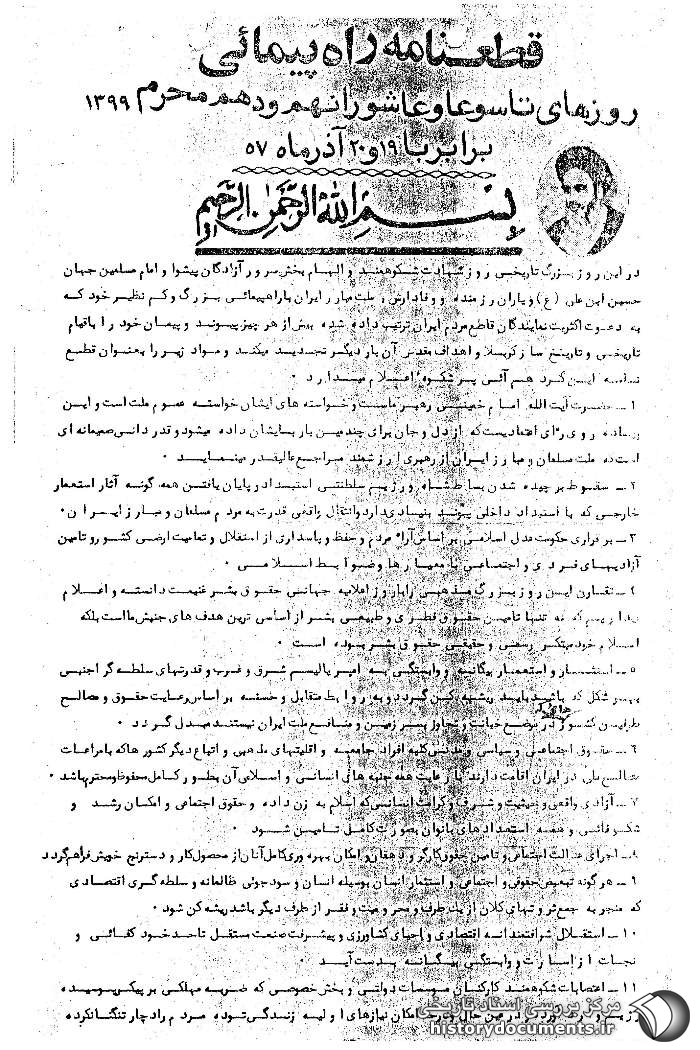 قطعنامه راه پیمائی
روزهای تاسوعا و عاشورا نهم و دهم محرم ۱۳۹۹
برابر با ۱۹ و ۲۰ آذرماه ۵۷
بسم الله الرحمن الرحیم
در این روز بزرگ تاریخی روز شهادت شکوهمند و الهام بخش سرور آزادگان پیشوا و امام مسلمین جهان
حسین ابن علی (ع) و یاران رزمنده و وفادارش و ملت مبارز ایران با راهپیمائی بزرگ و کم نظیر خود که
به دعوت اکثریت نمایندگان قاطع مردم ایران ترتیب داده شده بیش از هر چیز پیوند و پیمان خود را با قیام
تاریخی و تاریخ ساز کربلا و اهداف مقدس آن بار دیگر تجدید میکند و مواد زیر را بعنوان قطع
نامه این گرد هم آئی پر شکوه اعلام میدارد .
۱ – حضرت آیت الله امام خمینی رهبر ماست و خواسته های ایشان خواسته عموم ملت است و این
رای اعتمادیست که از دل و جان برای چندمین بار بایشان داده میشود و قدردانی صمیمانه ای
است که ملت مسلمان و مبارز ایران از رهبری ارزشمند مراجع عالیقدر مینماید .
۲ – سقوط بر چیده شدن بساط شاه و رژیم سلطنتی استبداد و پایان یافتن همه گونه آثار استعمار
خارجی که با استبداد داخلی پیوند بنیادی دارد و انتقال واقعی قدرت به مردم مسلمان و مبارز ایران .
۳ – برقراری حکومت عدل اسلامی بر اساس آراء مردم و حفظ و پاسداری از استقلال و تمامیت ارضی کشور و تامین
آزادیهای فردی و اجتماعی با معیارها و ضوابط اسلامی .
۴ – تقارن این روز بزرگ مذهبی را با روز اعلامیه جهانی حقوق بشر غنیمت دانسته و اعلام
میداریم که نه تنها تامین حقوق فطری و طبیعی بشر از اساسی ترین هدف های جنبش ما است بلکه
اسلام خود مبتکر واقعی و حقیقی حقوق بشر بوده است .
۵ – استثمار و استعمار بیگانه و وابستگی به امپریالیسم شرق و غرب و قدرتهای سلطه گر اجنبی
بهر شکل که باشد باید ریشه کن گردد و به روابط متقابل و حسنه بر اساس رعایت حقوق و مصالح
طرفین کشورهائیکه در موضع خیانت و تجاوز بسر زمین و منافع ملت ایران نیستند مبدل گردد .
۶ – حقوق اجتماعی و سیاسی و مدنی کلیه افراد جامعه و اقلیتهای مذهبی و اتباع دیگر کشورها که با مراعات
مصالح ملی در ایران اقامت دارند با رعایت همه جنبه های انسانی و اسلامی آن بطور کامل محفوظ و محترم باشد .
۷ – آزادی واقعی و حیثیت و شرف و کرامت انسانی که اسلام به زن داده و حقوق اجتماعی و امکان رشد و
شکوفائی و همه استعدادهای بانوان بصورت کامل تامین شود .
۸ – اجرای عدالت اجتماعی و تامین حقوق کارگر و دهقان و امکان بهره وری کامل آنان از محصول کار و دسترنج خویش فراهم گردد
۹ – هر گونه تبعیض حقوقی و اجتماعی و استثمار انسان بوسیله انسان و سودجوئی ظالمانه و سلطه گری اقتصادی
که منجر به جمع ثروتهای کلان از یک طرف و محرومیت و فقر از طرف دیگر باشد ریشه کن شود .
۱۰ – استقلال شرافتمندانه اقتصادی و احیای کشاورزی و پیشرفت صنعت مستقل تا حد خود کفائی و
نجات از اسارت و وابستگی بیگانه بدست آید .
۱۱ – اعتصابات شکوهمند کارکنان موسسات دولتی و بخش خصوصی که ضربه مهلکی بر پیکر پوسیده
در عین حال امکان نیازهای اولیه زندگی توده مردم را دچار تنگنا نکرده
مرکز بررسی اسناد تاریخی
historydocuments.ir